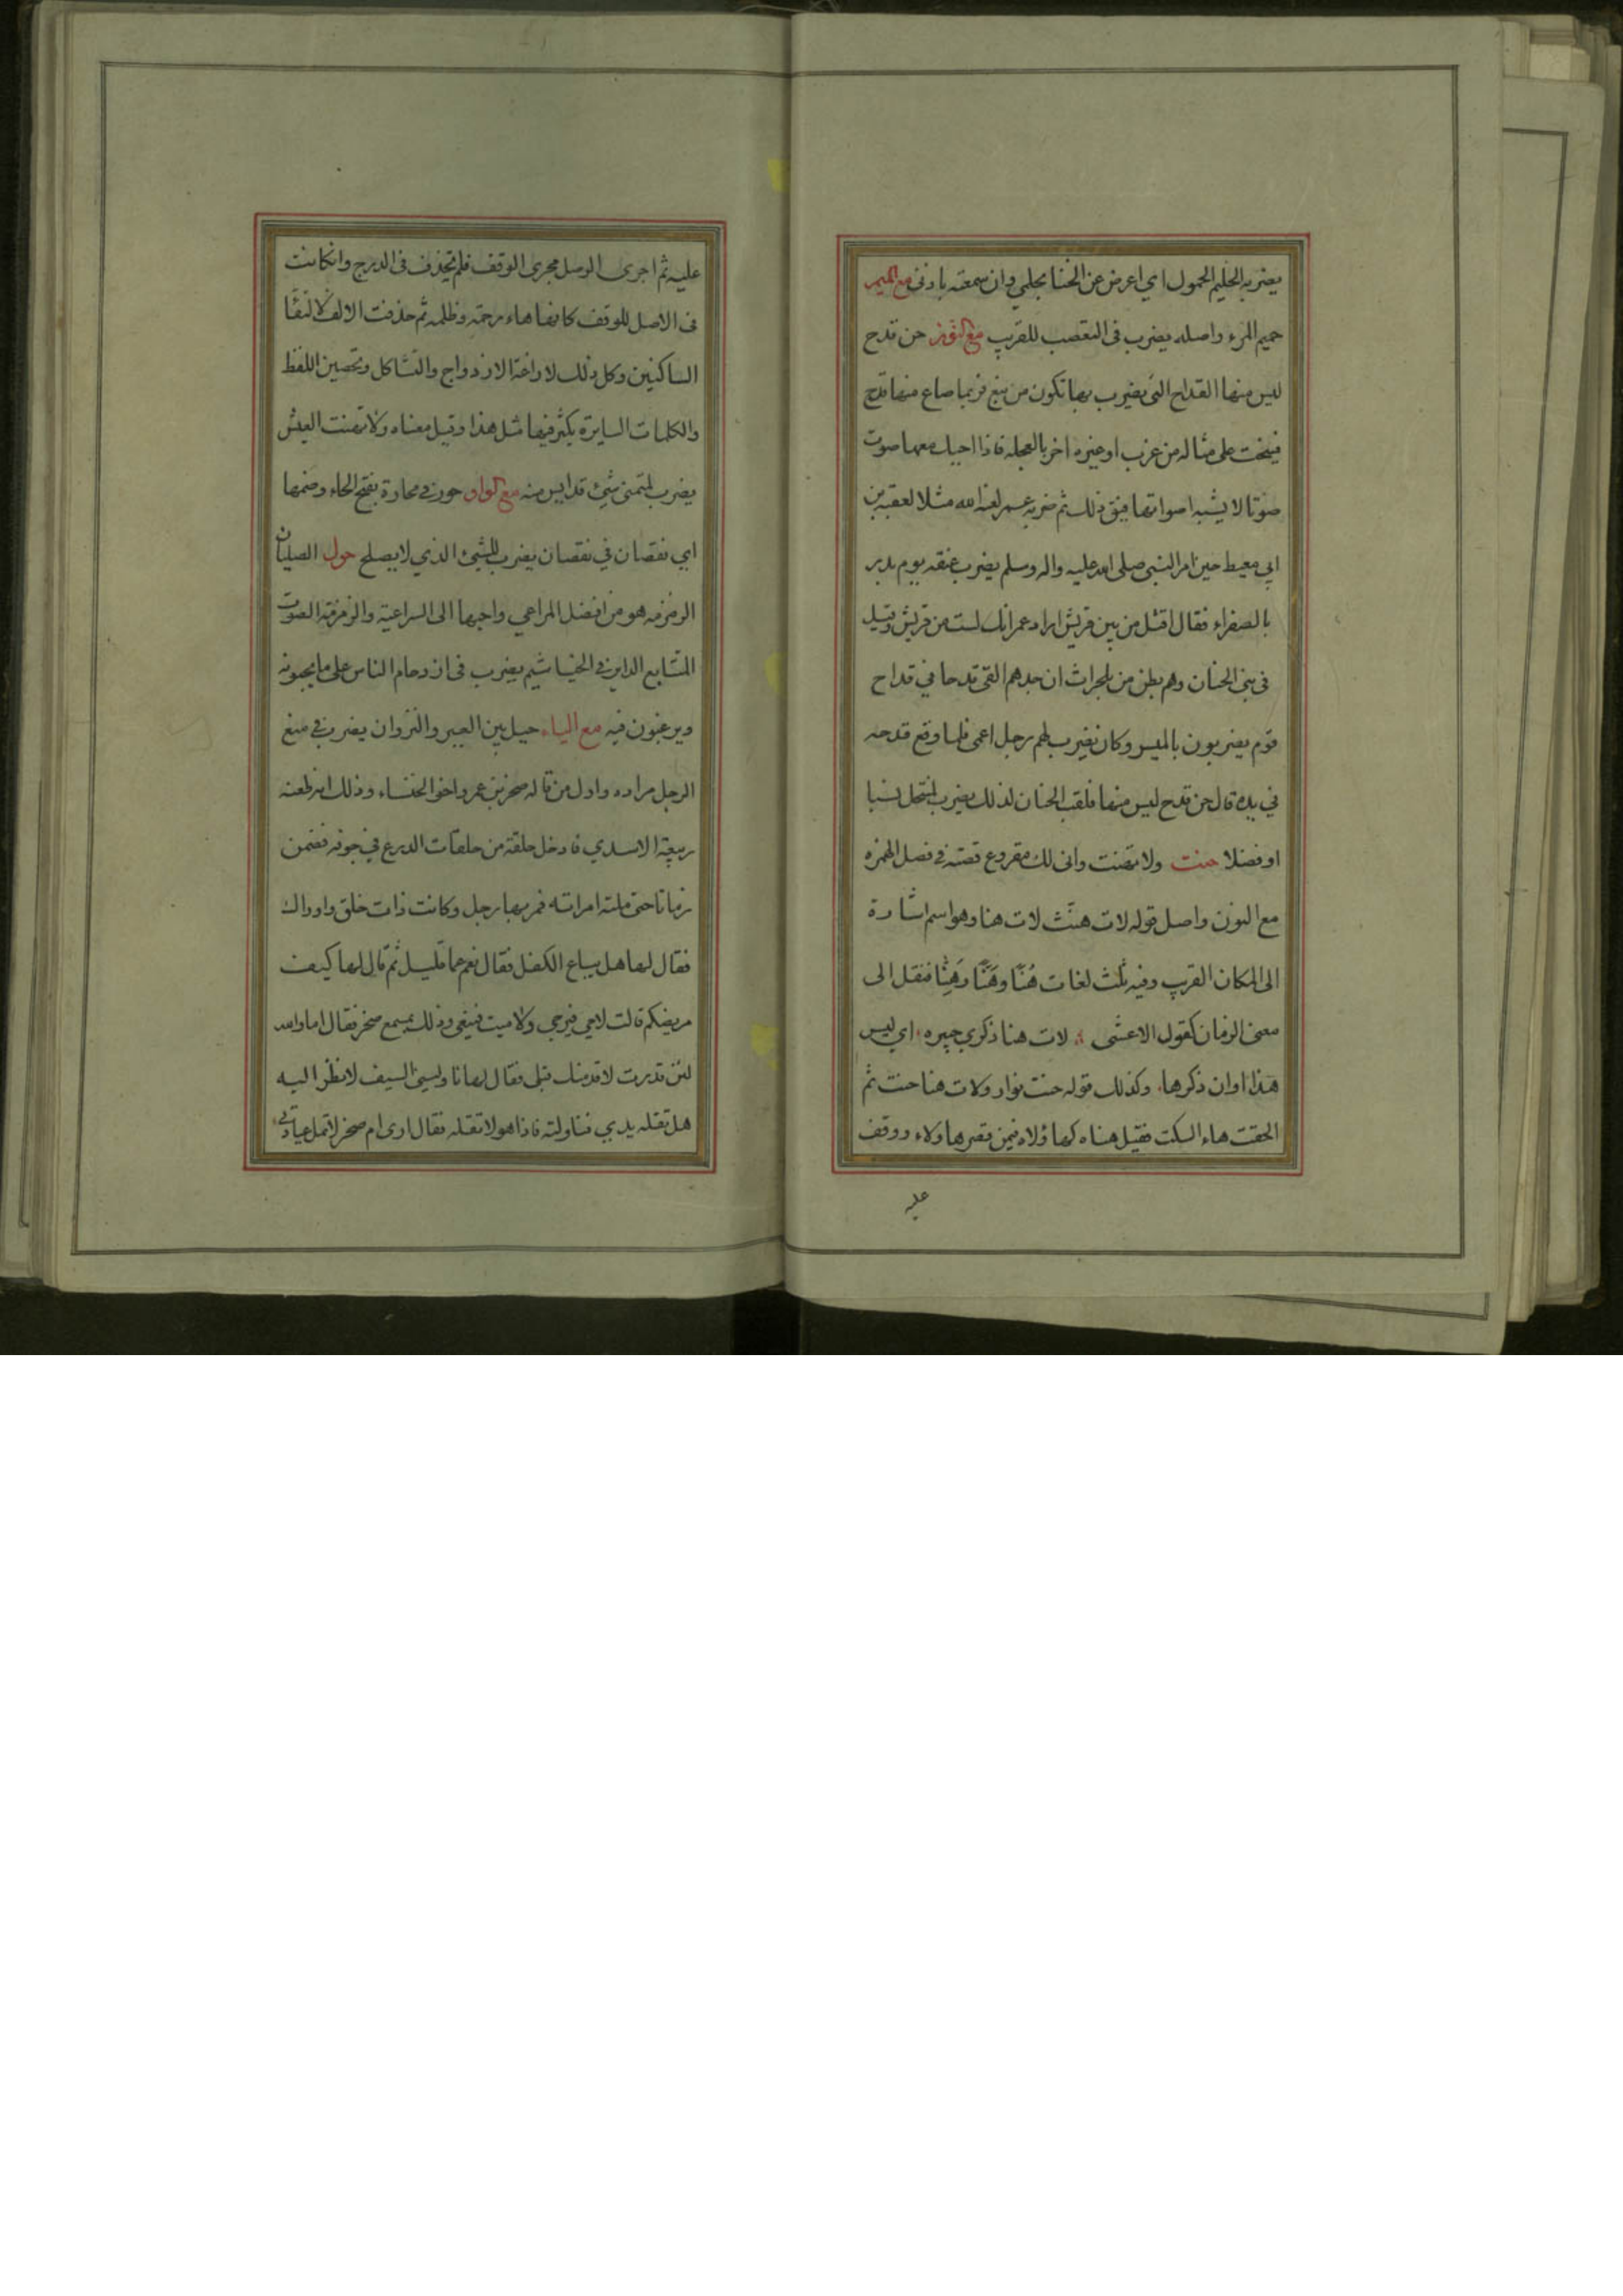 يضربه الحليم الحمول اي اعرض عن الخنا بحلمي وان سمعته باذنى مع الميم
حميم المرء واصله يضرب فى التعصب للقريب مع النون حن قدح
ليس منها القداح التى يضرب بها تكون من نبع فربما ضاع منها قدح
فينحت على مثاله من غرب او غيره اخر بالعجله فاذا احيل معها صوت
صوتا لا يشبه اصواتها فيق ذلك ثم ضربه عمر لعنه الله مثلا لعقبة بن
ابي معيط حين امر النبي صلى الله عليه واله وسلم يضرب عنقه يوم بدر
بالصفراء فقال اقتل من بين قريش اراد عمر انك لست من قريش وقيل
فى بنى الحنان وهم بطن من بلحراث ان جدهم القى قدحا في قداح
قوم يضربون بالميسر وكان يضرب لهم رجل اعمى فلما وقع قدحه
في يده قال حن قدح ليس منها فلقب الحنان لذلك يضرب لمنتحل نسبا
او فضلا حنت ولا تهنت وانى لك مقروع قصته فى فصل الهمزه
مع النون واصل قوله لات هنت لات هنا وهو اسم اشارة
الى المكان القريب وفيه ثلث لغات هُنَّا وهَنَّا وهِنَّا فنقل الى
معنى الزمان كقول الاعشى لات هنا ذكرى جبيره اي ليس
هذا اوان ذكرها وكذلك قوله حنت نوار ولات هنا حنت ثم
الحقت هاء السكت فقيل هناه كهاؤلاه فيمن قصرها ولاء ووقف
عليه
عليه ثم اجرى الوصل مجرى الوقف فلم تحذف فى الدرج وانكانت
فى الاصل للوقف كانها هاء رحمة وظلمه ثم حذفت الالف لالتقا
الساكنين وكل ذلك لاراغة الازدواج والتشاكل وتحصين اللفظ
والكلمات السايرة يكثر فيها مثل هذا وقيل معناه ولا تهنت العيش
يضرب لمتمنى شئ قد ايس منه مع الواو حور فى محارة بفتح الحاء وضمها
اي نقصان في نقصان يضرب للشئ الذي لا يصلح حول الصليان
الزمزمه هو من افضل المراعي واحبها الى الراعية والزمزمة الصوت
المتتابع الداير فى الخياشيم يضرب فى ازدحام الناس على ما يحبونه
ويرغبون فيه مع الياء حيل بين العير والنزوان يضرب في منع
الرجل مراده واول من قاله صخر بن عمرو اخو الخنساء وذلك انه طعنه
ربيعة الاسدي فادخل حلقة من حلقات الدرع في جوفه فضمن
زمانا حتى ملته امراته فمر بها رجل وكانت ذات خلق واوراك
فقال لها هل يباع الكفل فقال نعم عما قليل ثم قال لها كيف
مريضكم قالت لا حي فيرجى ولا ميت فينعى وذلك بمسمع صخر فقال اما والله
لئن قدرت لاقدمنك قبلى فقال لها ناوليني السيف لانظر اليه
هل تقله يدي فناولته فاذا هو لا تقله فقال ارى ام صخر لا تمل عيادتى